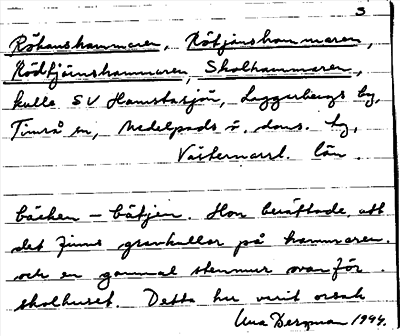 3
Rökanshammaren, Rötjänshammaren,
Rödtjärnshammaren, Skolhammaren,
kulle SV Hamstasjön, Laggarbergs by,
Timrå sn, Medelpads v. doms. by,
Västernorrl. län.
bäcken – bätjen. Hon berättade att
det finns gravkullar på hammaren.
och en gammal stenmur ovanför
skolhuset. Detta har varit orsak
Una Bergman 1944.